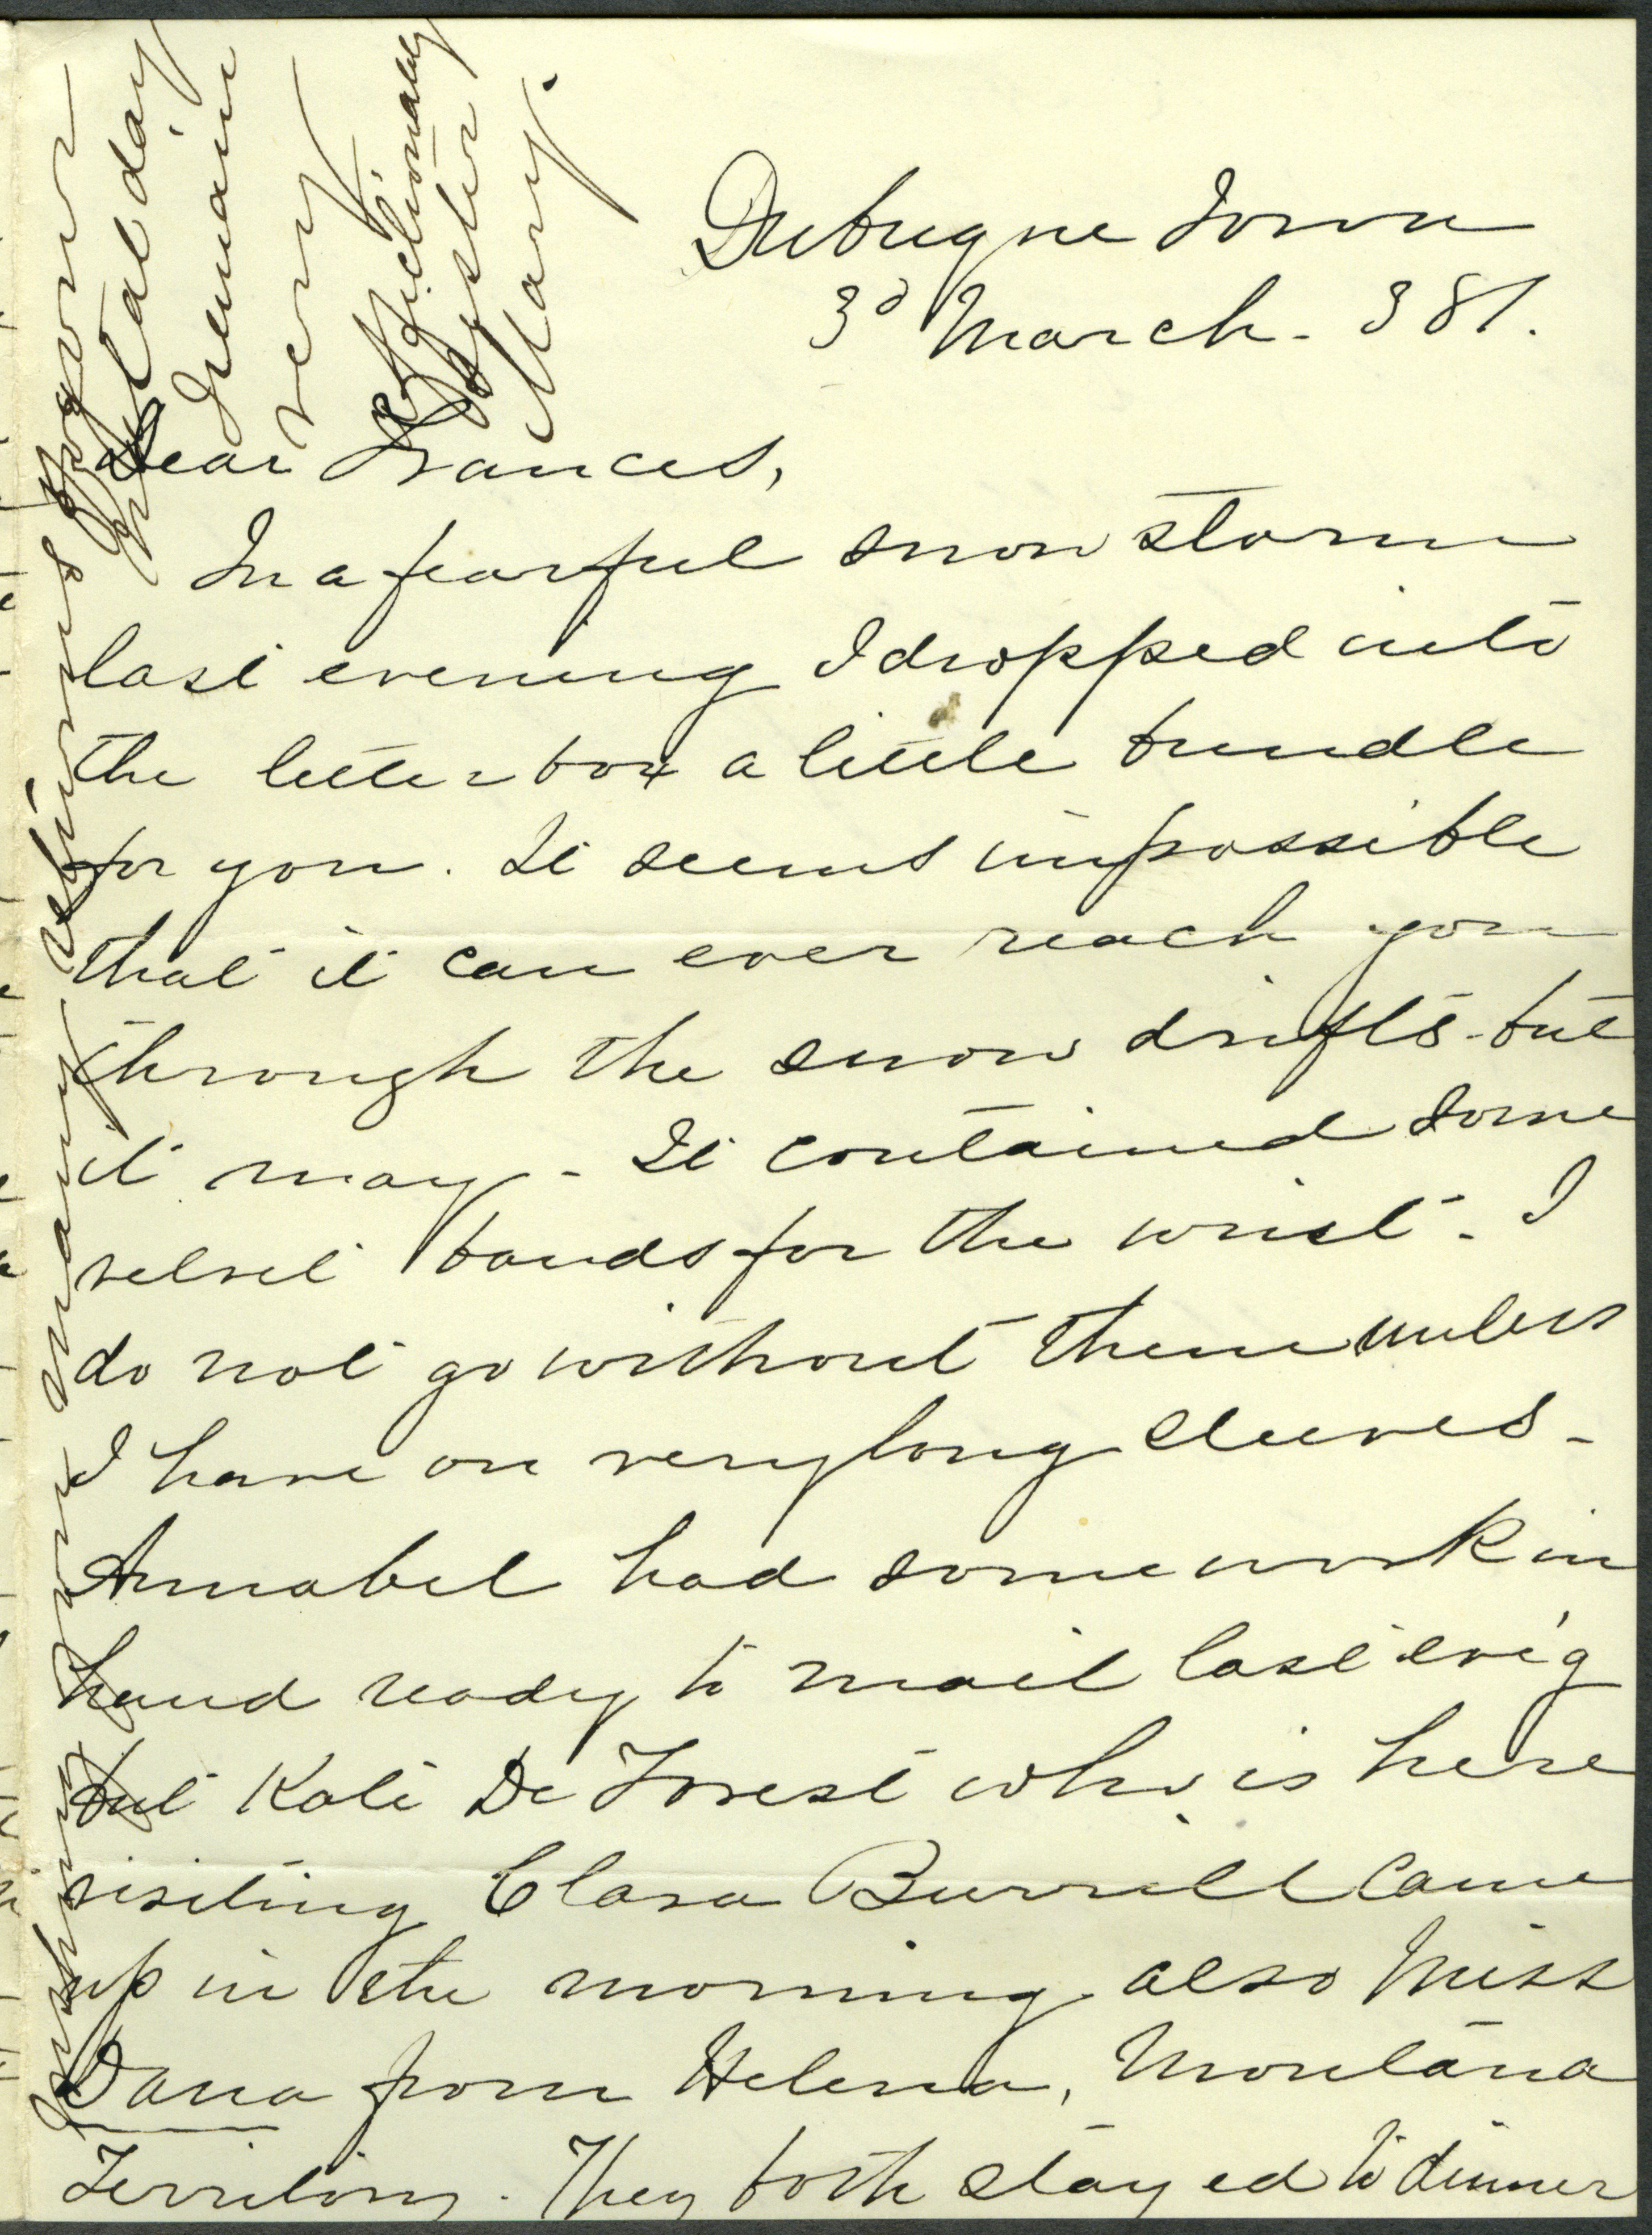 Dubuque Iowa
3d March. 381.
Dear Frances,
In a fearful snow storm
last evening I dropped into
the letter box a little bundle
for you. It seems impossible
that it can ever reach you
through the snow drifts - but
it may - It contained some
velvet bands for the wrist - I
do not go without them unless
I have on very long sleeves -
Annabel had some work in
hand ready to mail last ev'g
but Kate De Forest who is here
visiting Clara Burrell came
up in the morning also Miss
Dana from Helena, Montana
Territory. They both stayed to dinner
wishing you many returns of your
natal day
I remain
very
affectionately
Sister
Mary.